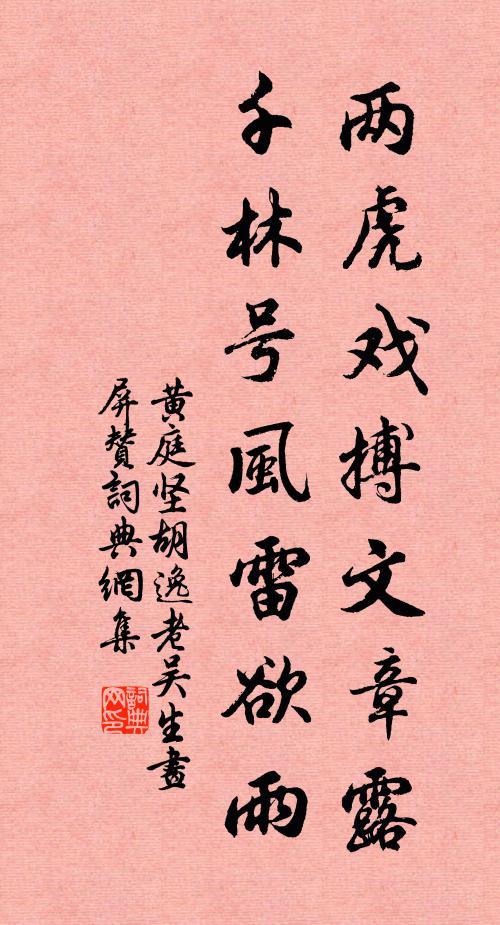 两虎戏搏文章露
千林号風雷欲雨
黄庭坚胡逸老吴生畫
屏贊詞典網集
詞典
网印